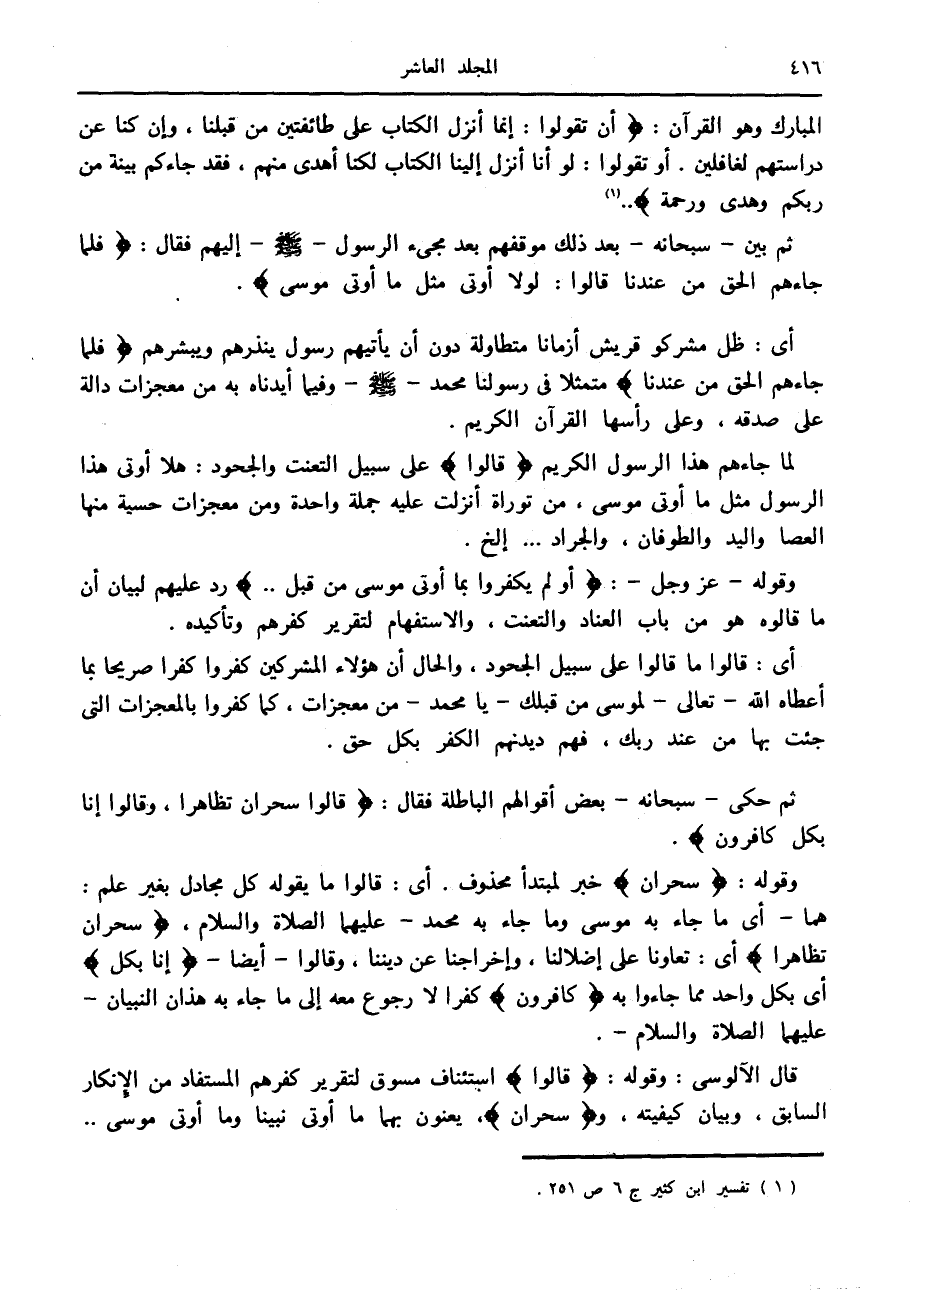 ٤١٦
المجلد العاشر
المبارك وهو القرآن : ﴿ أن تقولوا : إنما أنزل الكتاب على طائفتين من قبلنا ، وإن كنا عن
دراستهم لغافلين . أو تقولوا : لو أنا أنزل إلينا الكتاب لكنا أهدى منهم ، فقد جاءكم بينة من
ربكم وهدى ورحمة ﴾..(١)
ثم بين – سبحانه – بعد ذلك موقفهم بعد مجىء الرسول – ﷺ – إليهم فقال : ﴿ فلما
جاءهم الحق من عندنا قالوا : لولا أوتى مثل ما أوتى موسى ﴾ .
أى : ظل مشركو قريش أزمانا متطاولة دون أن يأتيهم رسول ينذرهم ويبشرهم ﴿ فلما
جاءهم الحق من عندنا ﴾ متمثلا فى رسولنا محمد – ﷺ – وفيما أيدناه به من معجزات دالة
على صدقه ، وعلى رأسها القرآن الكريم .
لما جاءهم هذا الرسول الكريم ﴿ قالوا ﴾ على سبيل التعنت والجحود : هلا أوتى هذا
الرسول مثل ما أوتى موسى ، من توراة أنزلت عليه جملة واحدة ومن معجزات حسية منها
العصا واليد والطوفان ، والجراد ... إلخ .
وقوله – عز وجل – : ﴿ أو لم يكفروا بما أوتى موسى من قبل .. ﴾ رد عليهم لبيان أن
ما قالوه هو من باب العناد والتعنت ، والاستفهام لتقرير كفرهم وتأكيده .
أى : قالوا ما قالوا على سبيل الجحود ، والحال أن هؤلاء المشركين كفروا كفرا صريحا بما
أعطاه الله – تعالى – لموسى من قبلك – يا محمد – من معجزات ، كما كفروا بالمعجزات التى
جئت بها من عند ربك ، فهم ديدنهم الكفر بكل حق .
ثم حكى – سبحانه – بعض أقوالهم الباطلة فقال : ﴿ قالوا سحران تظاهرا ، وقالوا إنا
بكل كافرون ﴾ .
وقوله : ﴿ سحران ﴾ خبر لمبتدأ محذوف . أى : قالوا ما يقوله كل مجادل بغير علم :
هما – أى ما جاء به موسى وما جاء به محمد – عليهما الصلاة والسلام ، ﴿ سحران
تظاهرا ﴾ أى : تعاونا على إضلالنا ، وإخراجنا عن ديننا ، وقالوا – أيضا – ﴿ إنا بكل ﴾
أى بكل واحد مما جاءوا به ﴿ كافرون ﴾ كفرا لا رجوع معه إلى ما جاء به هذان النبيان –
عليهما الصلاة والسلام – .
قال الآلوسى : وقوله : ﴿ قالوا ﴾ استئناف مسوق لتقرير كفرهم المستفاد من الإنكار
السابق ، وبيان كيفيته ، و﴿ سحران ﴾، يعنون بهما ما أوتى نبينا وما أوتى موسى ..
( ١ ) تفسير ابن كثير ج ٦ ص ٢٥١ .